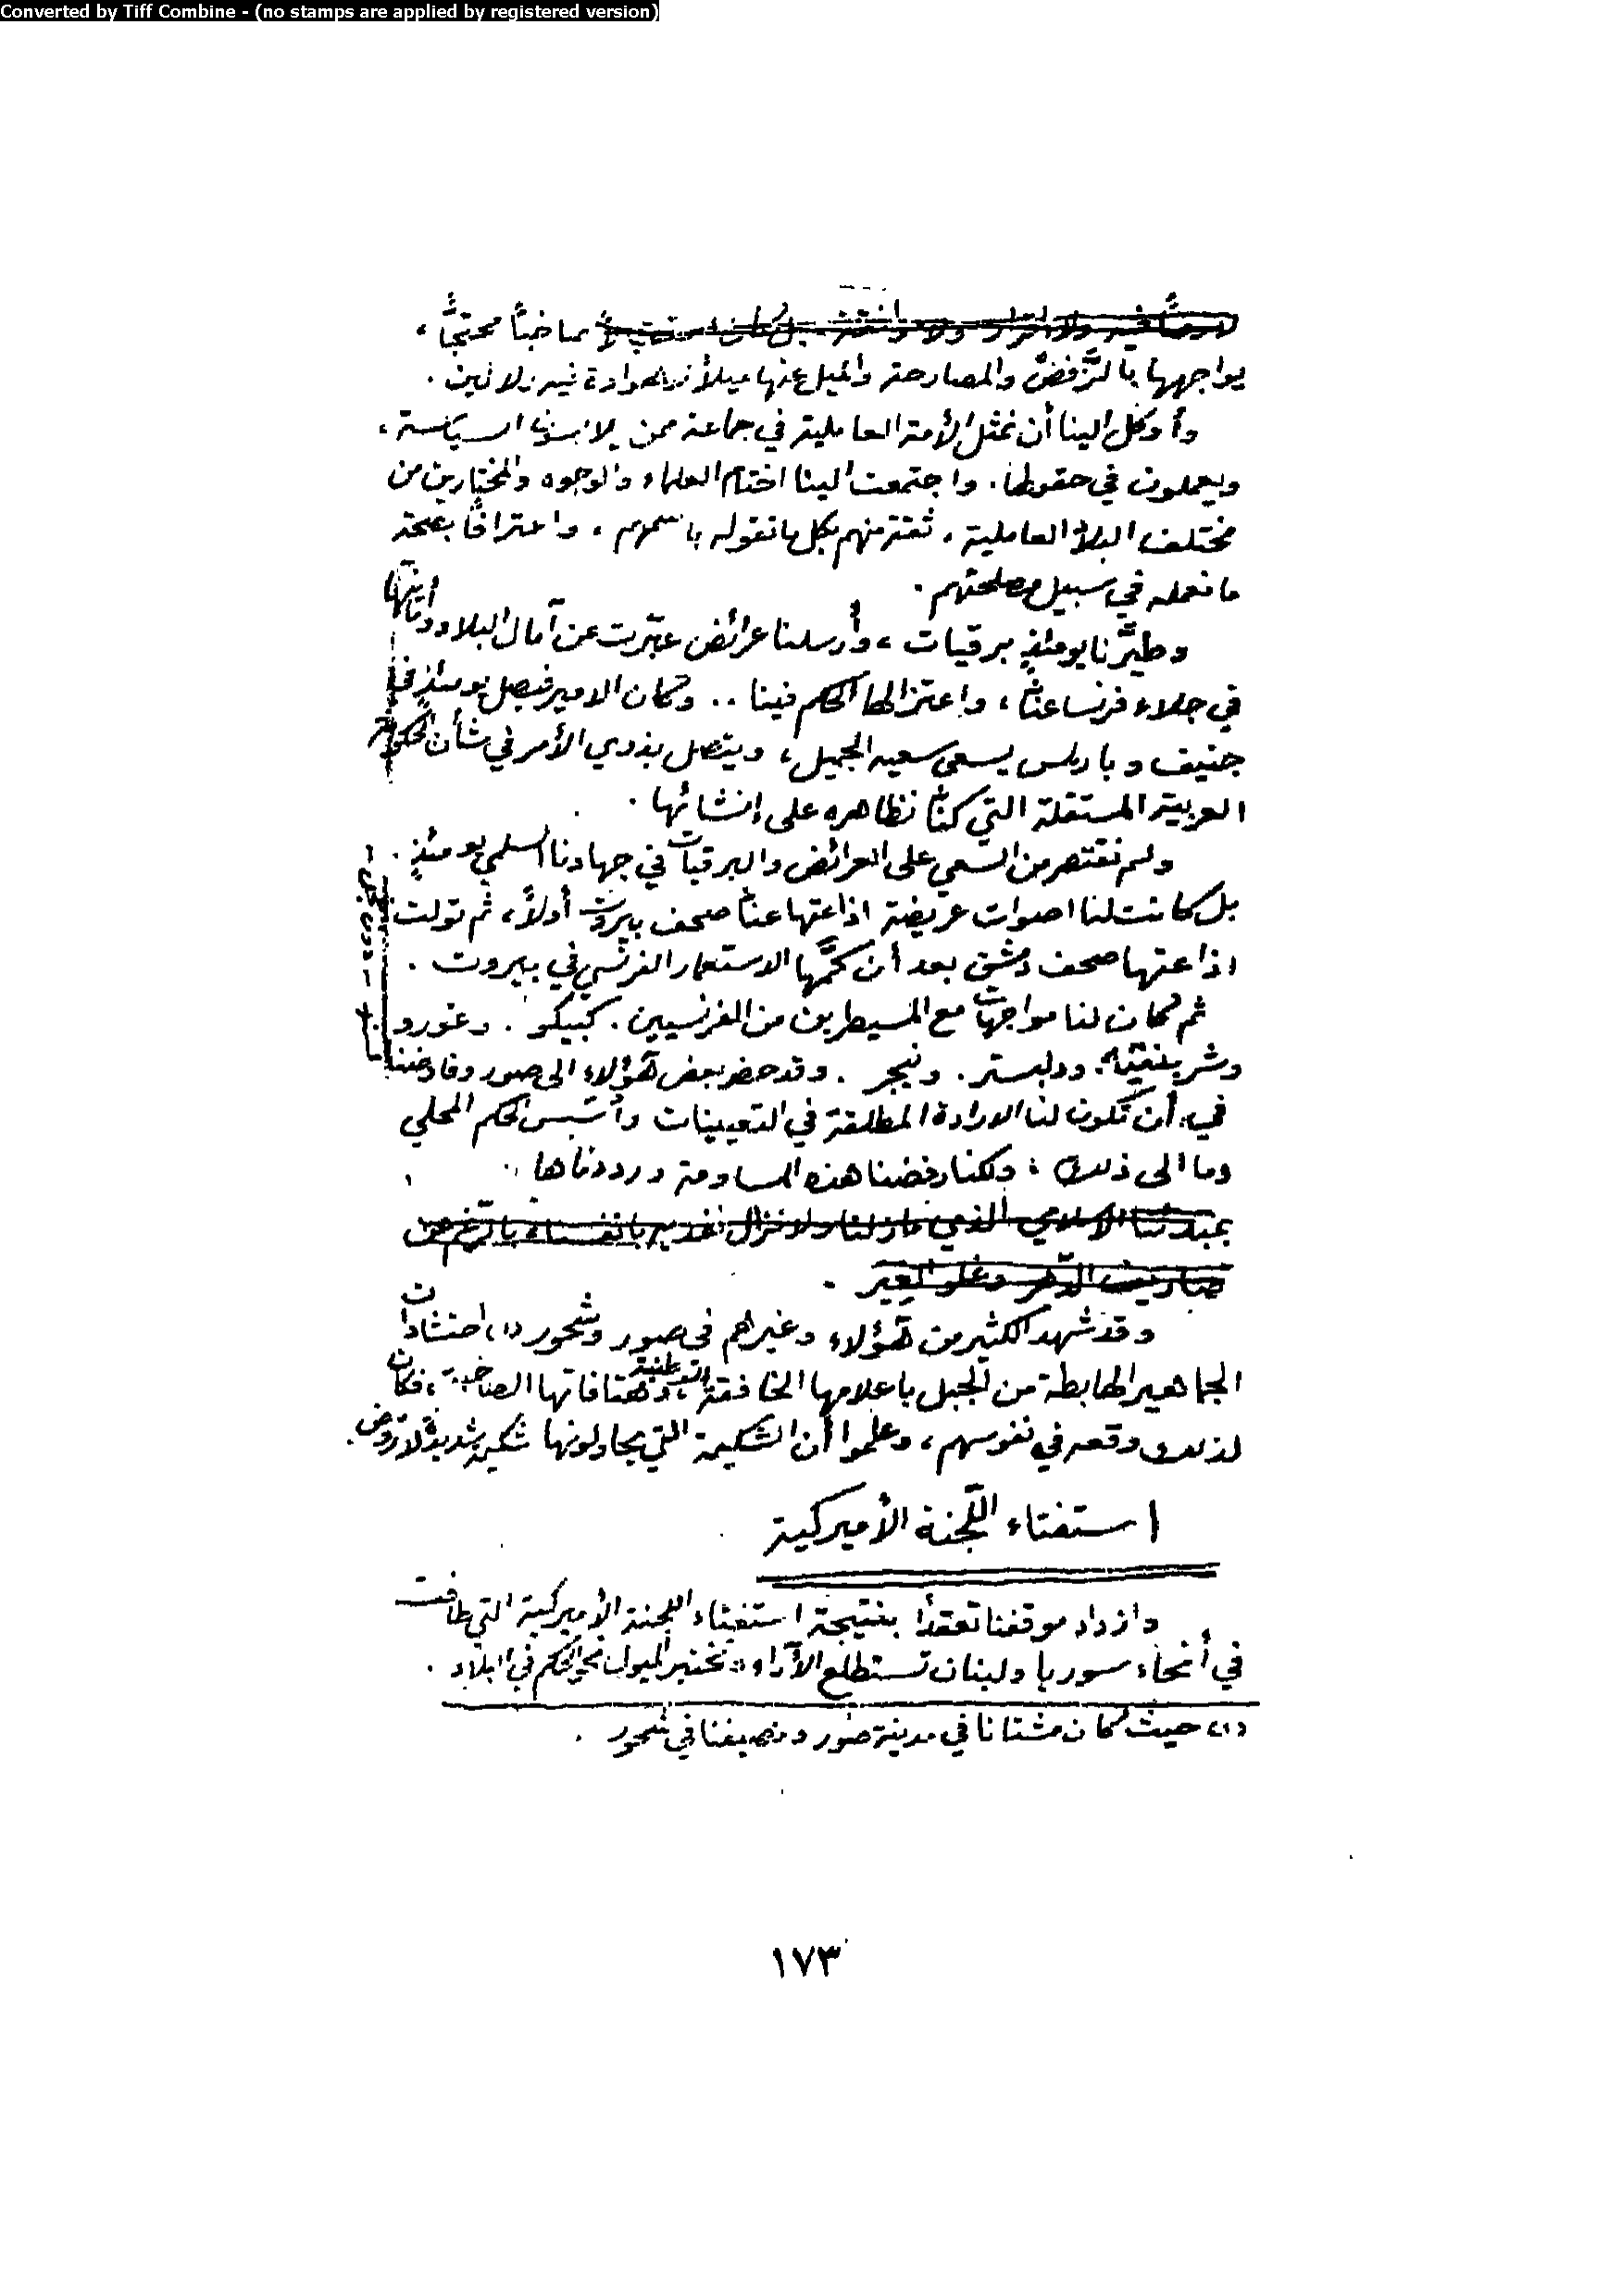 Converted by Tiff Combine - (no stamps are applied by registered version)
محتجًّا،
يواجهها بالرَّفض والمصارحة والميل عنها ميلاً لا هوادة فيه ولا لين.
وأوكل الينا أن نمثل الأمة العاملية في جماعة ممن يلابسون السياسة،
ويعملون في حقولها. واجتمعت الينا اختام العلماء والوجوه والمختارين من
مختلف البلاد العاملية، ثقة منهم بكل ما نقوله باسمهم، واعترافًا بصحة
ما نعمله في سبيل مصلحتهم.
وطيَّرنا يومئذٍ برقيات، وأرسلنا عرائض عبّرت عن آمال البلاد
في جلاء فرنسا عنّا، واعتزالها الحكم فينا .. وكان الامير فيصل يومئذٍ في
جنيف وباريس يسعى سعيه الجميل، ويتصل بذوي الأمر في شأن الحكومة
العربية المستقلة التي كنّا نظاهره على إنشائها.
ولم نقتصر من السعي على العرائض والبرقيات في جهادنا السلمي يومئذٍ.
بل كانت لنا اصوات عريضة اذاعتها عنّا صحف بيروت أولاً، ثم تولت
اذاعتها صحف دمشق بعد أن كمَّها الاستعمار الفرنسي في بيروت.
ثم كان لنا مواجهات مع المسيطرين من الفرنسيين. كبيكو. وغورو
ودلبستر. ونيجر. وقد حضر بعض هؤلاء الى صور وفاوضنا
في أن تكون لنا الارادة المطلقة في التعيينات وأسس الحكم المحلي
وما الى ذلك، ولكنا رفضنا هذه المساومة ورددناها
بمبدئنا الاسلامي الذي مازلنا ولا نزال نفديه بأنفسنا بالرّغم من
وقد شهد الكثير من هؤلاء وغيرهم في صور وشحور (١) احتشادات
الجماهير الهابطة من الجبل باعلامها الخافقة، وهتافاتها الوطنية الصاخبة، فكان
لذلك وقعه في نفوسهم، وعلموا أن الشكيمة التي يحاولونها شكيمة شديدة لا تروّض.
استفتاء اللّجنة الأميركية
وازداد موقفنا تعقدًا بنتيجة استفتاء اللجنة الأميركية التي طافت
في أنحاء سوريا ولبنان تستطلع الآراء وتختبر الميول نحو الحكم في البلاد.
(١) حيث كان مشتانا في مدينة صور ومصيفنا في شحور.
١٧٣